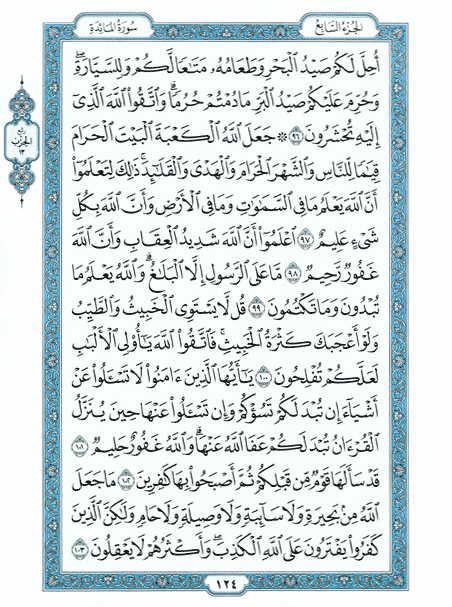 سُورَةُ المَائِدَة
الجُزْءُ السَّابِعُ
أُحِلَّ لَكُمْ صَيْدُ ٱلْبَحْرِ وَطَعَامُهُۥ مَتَٰعًا لَّكُمْ وَلِلسَّيَّارَةِۖ
وَحُرِّمَ عَلَيْكُمْ صَيْدُ ٱلْبَرِّ مَا دُمْتُمْ حُرُمًاۗ وَٱتَّقُوا۟ ٱللَّهَ ٱلَّذِىٓ
إِلَيْهِ تُحْشَرُونَ ٩٦ ۞ جَعَلَ ٱللَّهُ ٱلْكَعْبَةَ ٱلْبَيْتَ ٱلْحَرَامَ
قِيَٰمًا لِّلنَّاسِ وَٱلشَّهْرَ ٱلْحَرَامَ وَٱلْهَدْىَ وَٱلْقَلَٰٓئِدَۚ ذَٰلِكَ لِتَعْلَمُوٓا۟
أَنَّ ٱللَّهَ يَعْلَمُ مَا فِى ٱلسَّمَٰوَٰتِ وَمَا فِى ٱلْأَرْضِ وَأَنَّ ٱللَّهَ بِكُلِّ
شَىْءٍ عَلِيمٌ ٩٧ ٱعْلَمُوٓا۟ أَنَّ ٱللَّهَ شَدِيدُ ٱلْعِقَابِ وَأَنَّ ٱللَّهَ
غَفُورٌ رَّحِيمٌ ٩٨ مَّا عَلَى ٱلرَّسُولِ إِلَّا ٱلْبَلَٰغُۗ وَٱللَّهُ يَعْلَمُ مَا
تُبْدُونَ وَمَا تَكْتُمُونَ ٩٩ قُل لَّا يَسْتَوِى ٱلْخَبِيثُ وَٱلطَّيِّبُ
وَلَوْ أَعْجَبَكَ كَثْرَةُ ٱلْخَبِيثِۚ فَٱتَّقُوا۟ ٱللَّهَ يَٰٓأُو۟لِى ٱلْأَلْبَٰبِ
لَعَلَّكُمْ تُفْلِحُونَ ١٠٠ يَٰٓأَيُّهَا ٱلَّذِينَ ءَامَنُوا۟ لَا تَسْـَٔلُوا۟ عَنْ
أَشْيَآءَ إِن تُبْدَ لَكُمْ تَسُؤْكُمْ وَإِن تَسْـَٔلُوا۟ عَنْهَا حِينَ يُنَزَّلُ
ٱلْقُرْءَانُ تُبْدَ لَكُمْ عَفَا ٱللَّهُ عَنْهَاۗ وَٱللَّهُ غَفُورٌ حَلِيمٌ ١٠١
قَدْ سَأَلَهَا قَوْمٌ مِّن قَبْلِكُمْ ثُمَّ أَصْبَحُوا۟ بِهَا كَٰفِرِينَ ١٠٢ مَا جَعَلَ
ٱللَّهُ مِنۢ بَحِيرَةٍ وَلَا سَآئِبَةٍ وَلَا وَصِيلَةٍ وَلَا حَامٍۙ وَلَٰكِنَّ ٱلَّذِينَ
كَفَرُوا۟ يَفْتَرُونَ عَلَى ٱللَّهِ ٱلْكَذِبَۖ وَأَكْثَرُهُمْ لَا يَعْقِلُونَ ١٠٣
ربع
الحزب
١٣
١٢٤